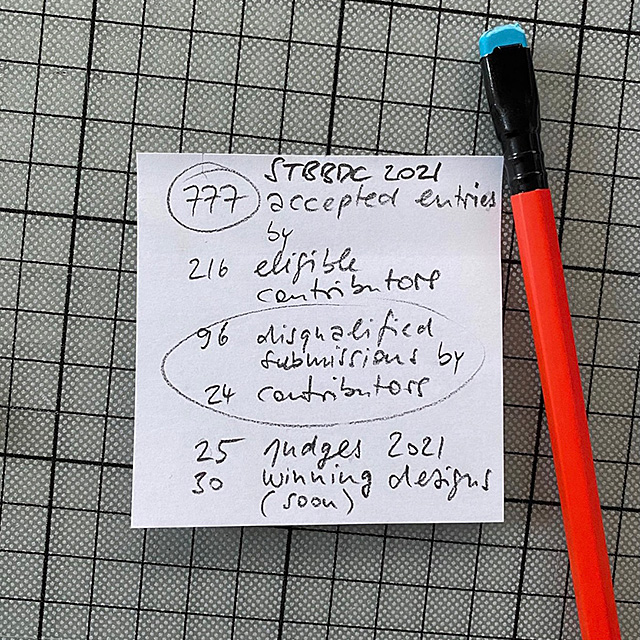 STBBDC 2021
777 accepted entries
by
216 eligible
contributors
96 disqualified
submissions by
24 contributors
25 judges 2021
30 winning designs
(soon)